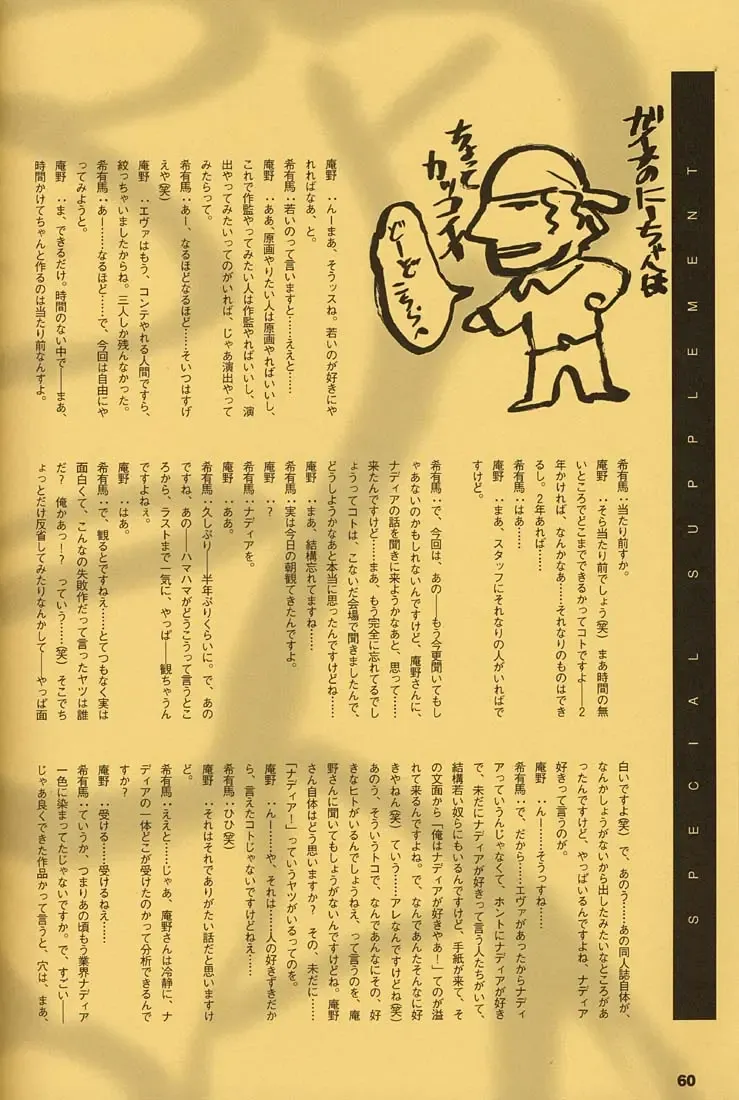 SPECIAL SUPPLEMENT
ちょって
カッコイイ
どーどころう、
庵野　：んーまあ、そうッスね。若いのが好きにや
れればなあ、と。
希有馬：若いのって言いますと……ええと……
庵野　：ああ、原画やりたい人は原画やればいいし、
これで作監やってみたい人は作監やればいいし、演
出やってみたいってのがいれば、じゃあ演出やって
みたらって。
希有馬：あー、なるほどなるほど……そいつはすげ
えや(笑)
庵野　：エヴァはもう、コンテやれる人間ですら、
絞っちゃいましたからね。三人しか残んなかった。
希有馬：あー……なるほど……で、今回は自由にや
ってみようと。
庵野　：ま、できるだけ。時間のない中で――まあ、
時間かけてちゃんと作るのは当たり前なんすよ。
希有馬：当たり前すか。
庵野　：そら当たり前でしょう(笑)　まあ時間の無
いところでどこまでできるかってコトですよ――2
年かければ、なんかなあ……それなりのものはでき
るし。2年あれば……
希有馬：はあ……
庵野　：まあ、スタッフにそれなりの人がいればで
すけど。
希有馬：で、今回は、あの――もう今更聞いてもし
ゃあないのかもしれないんですけど、庵野さんに、
ナディアの話を聞きに来ようかなあと、思って……
来たんですけど……まあ、もう完全に忘れてるでし
ょうってコトは、こないだ会場で聞きましたんで、
どうしようかなあと本当に思ったんですけどね……
庵野　：まあ、結構忘れてますね……
希有馬：実は今日の朝観てきたんですよ。
庵野　：？
希有馬：ナディアを。
庵野　：ああ。
希有馬：久しぶり――半年ぶりくらいに。で、あの
ですね、あの――ハマハマがどうこうって言うとこ
ろから、ラストまで一気に、やっぱ――観ちゃうん
ですよねぇ。
庵野　：はあ。
希有馬：で、観るとですねえ……とてつもなく実は
面白くて、こんなの失敗作だって言ったヤツは誰
だ？　俺かあっ！？　っていう……(笑) そこでち
ょっとだけ反省してみたりなんかして――やっぱ面
白いですよ(笑)　で、あのう……あの同人誌自体が、
なんかしょうがないから出したみたいなところがあ
ったんですけど、やっぱいるんですよね、ナディア
好きって言うのが。
庵野　：んー……そうっすね……
希有馬：で、だから……エヴァがあったからナディ
アっていうんじゃなくて、ホントにナディアが好き
で、未だにナディアが好きって言う人たちがいて、
結構若い奴らにもいるんですけど、手紙が来て、そ
の文面から「俺はナディアが好きやあ！」てのが溢
れて来るんですよね。で、なんであんたそんなに好
きやねん(笑)　ていう……アレなんですけどね(笑)
あのう、そういうトコで、なんであんなにその、好
きなヒトがいるんでしょうねえ、って言うのを、庵
野さんに聞いてもしょうがないんですけどね。庵野
さん自体はどう思いますか？　その、未だに……
「ナディア！」っていうヤツがいるってのを。
庵野　：んー……や、それは……人の好きずきだか
ら、言えたコトじゃないですけどねえ……
希有馬：ひひ(笑)
庵野　：それはそれでありがたい話だと思いますけ
ど。
希有馬：ええと……じゃあ、庵野さんは冷静に、ナ
ディアの一体どこが受けたのかって分析できるんで
すか？
庵野　：受ける……受けるねえ……
希有馬：ていうか、つまりあの頃もう業界ナディア
一色に染まってたじゃないですか。で、すごい――
じゃあ良くできた作品かって言うと、穴は、まあ、
60